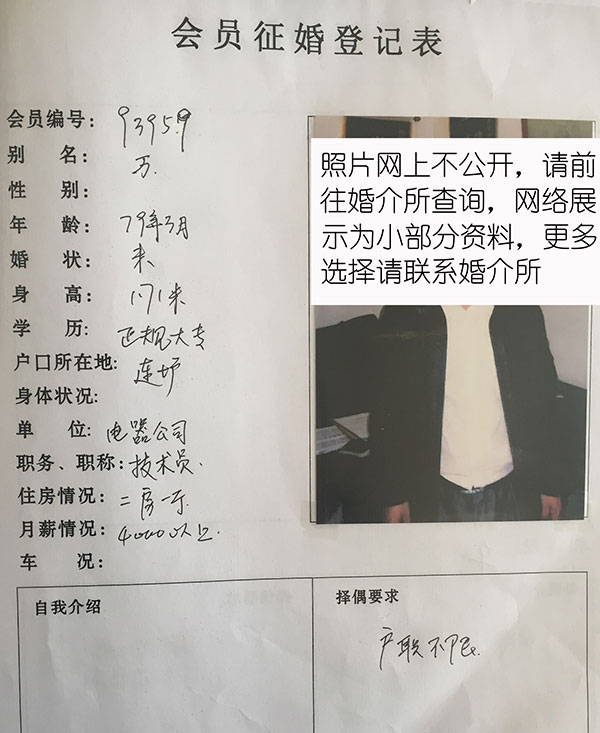 会员征婚登记表
会员编号: 93959
别 名: 万
性 别:
年 龄: 79年3月
婚 状: 未
身 高: 1.71米
学 历: 正规大专
户口所在地:
身体状况:
单 位: 电器公司
职务、职称: 技术员.
住房情况: 二房一厅
月薪情况: 4000以上.
车 况:
照片网上不公开，请前
往婚介所查询，网络展
示为小部分资料，更多
选择请联系婚介所
自我介绍
择偶要求
不限.